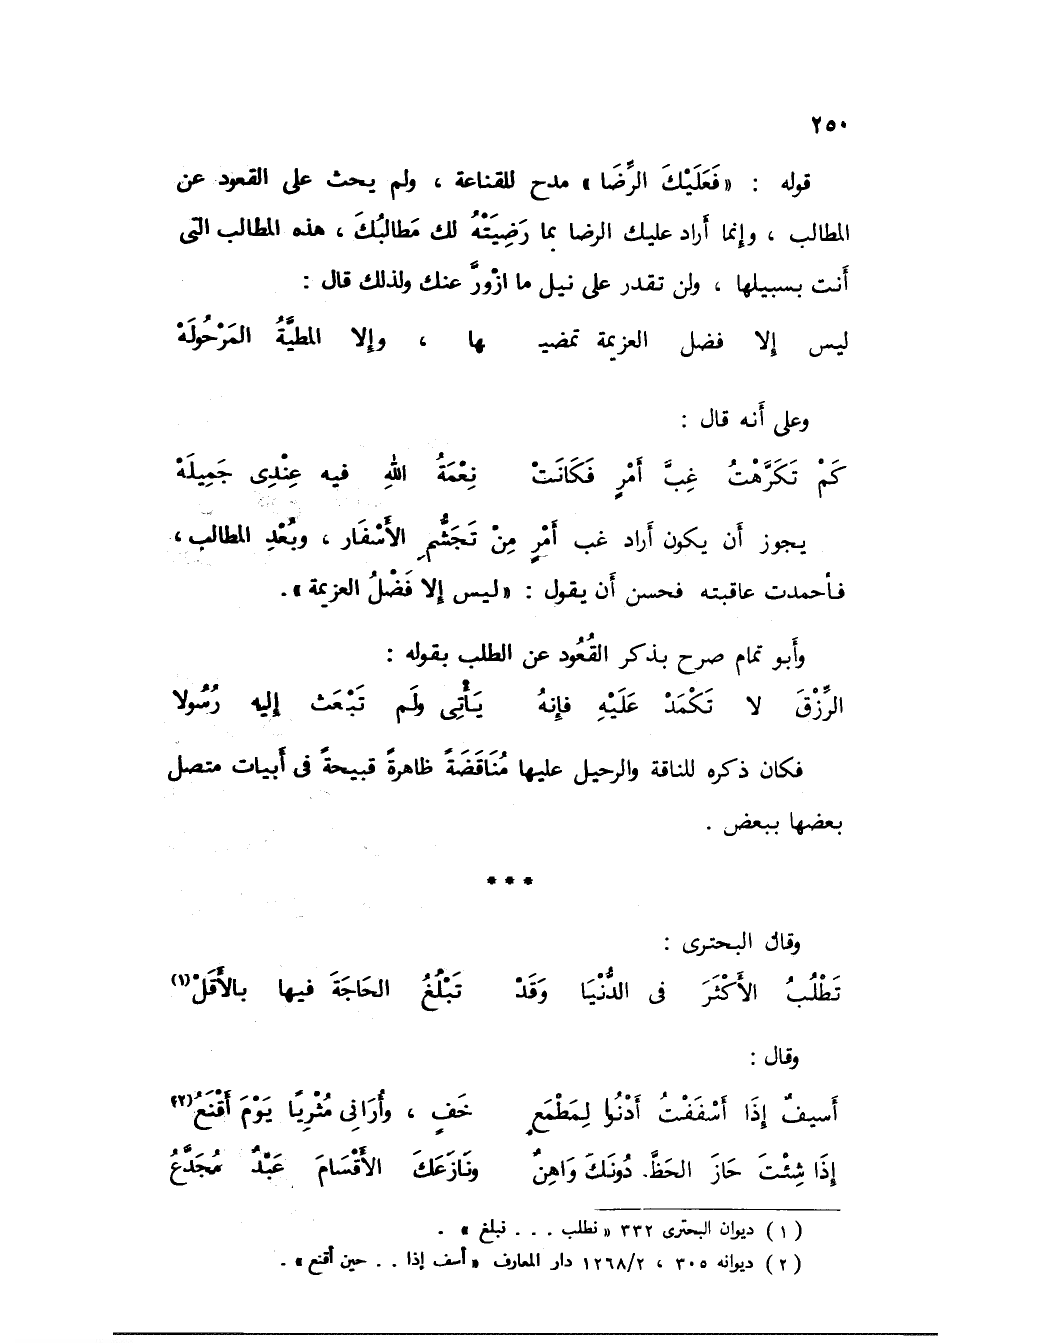 ٢٥٠
قوله : «فَعَلَيْكَ الرِّضَا» مدح للقناعة ، ولم يحث على القعود عن
المطالب ، وإنما أَراد عليك الرضا بما رَضِيَتْهُ لك مَطالبُكَ ، هذه المطالب التى
أَنت بسبيلها ، ولن تقدر على نيل ما ازْورَّ عنك ولذلك قال :
ليس إلا فضل العزيمة تمضيـ ها ، وإلا المطيَّةُ المَرْحُولَهْ
وعلى أَنه قال :
كَمْ تَكَرَّهْتُ غِبَّ أَمْرٍ فَكَانَتْ نِعْمَةُ اللهِ فيه عِنْدِى جَمِيلَهْ
يجوز أَن يكون أَراد غب أَمْرٍ مِنْ تَجَشُّمِ الأَسْفَار ، وبُعْدِ المطالب ،
فأحمدت عاقبته فحسن أَن يقول : «ليس إلا فَضْلُ العزيمة» .
وأَبو تمام صرح بذكر القُعُود عن الطلب بقوله :
الرِّزْقَ لا تَكْمَدْ عَلَيْهِ فإِنهُ يَأْتِى ولَم تَبْعَث إليه رَسُولا
فكان ذكره للناقة والرحيل عليها مُنَاقَضَةً ظاهرةً قبيحةً فى أَبيات متصل
بعضها ببعض .
* * *
وقال البحترى :
تَطْلُبُ الأَكْثَرَ فى الدُّنْيَا وَقَدْ تَبْلُغُ الحَاجَةَ فيها بالأَقَلْ(١)
وقال :
أَسيفٌ إِذَا أَسْفَفْتُ أَدْنُوا لِمَطْمَعٍ خَفٍ ، وأُرَانِى مُثْرِيًا يَوْمَ أَقْنَعُ(٢)
إِذَا شِئْتَ حَازَ الحَظَّ دُونَكَ وَاهِنٌ ونَازَعَكَ الأَقْسَامَ عَبْدٌ مُجَدَّعُ
( ١ ) ديوان البحترى ٣٣٢ « نطلب . . . نبلغ » .
( ٢ ) ديوانه ٣٠٥ ، ١٢٦٨/٢ دار المعارف « أسف إذا . . حين أقنع » .